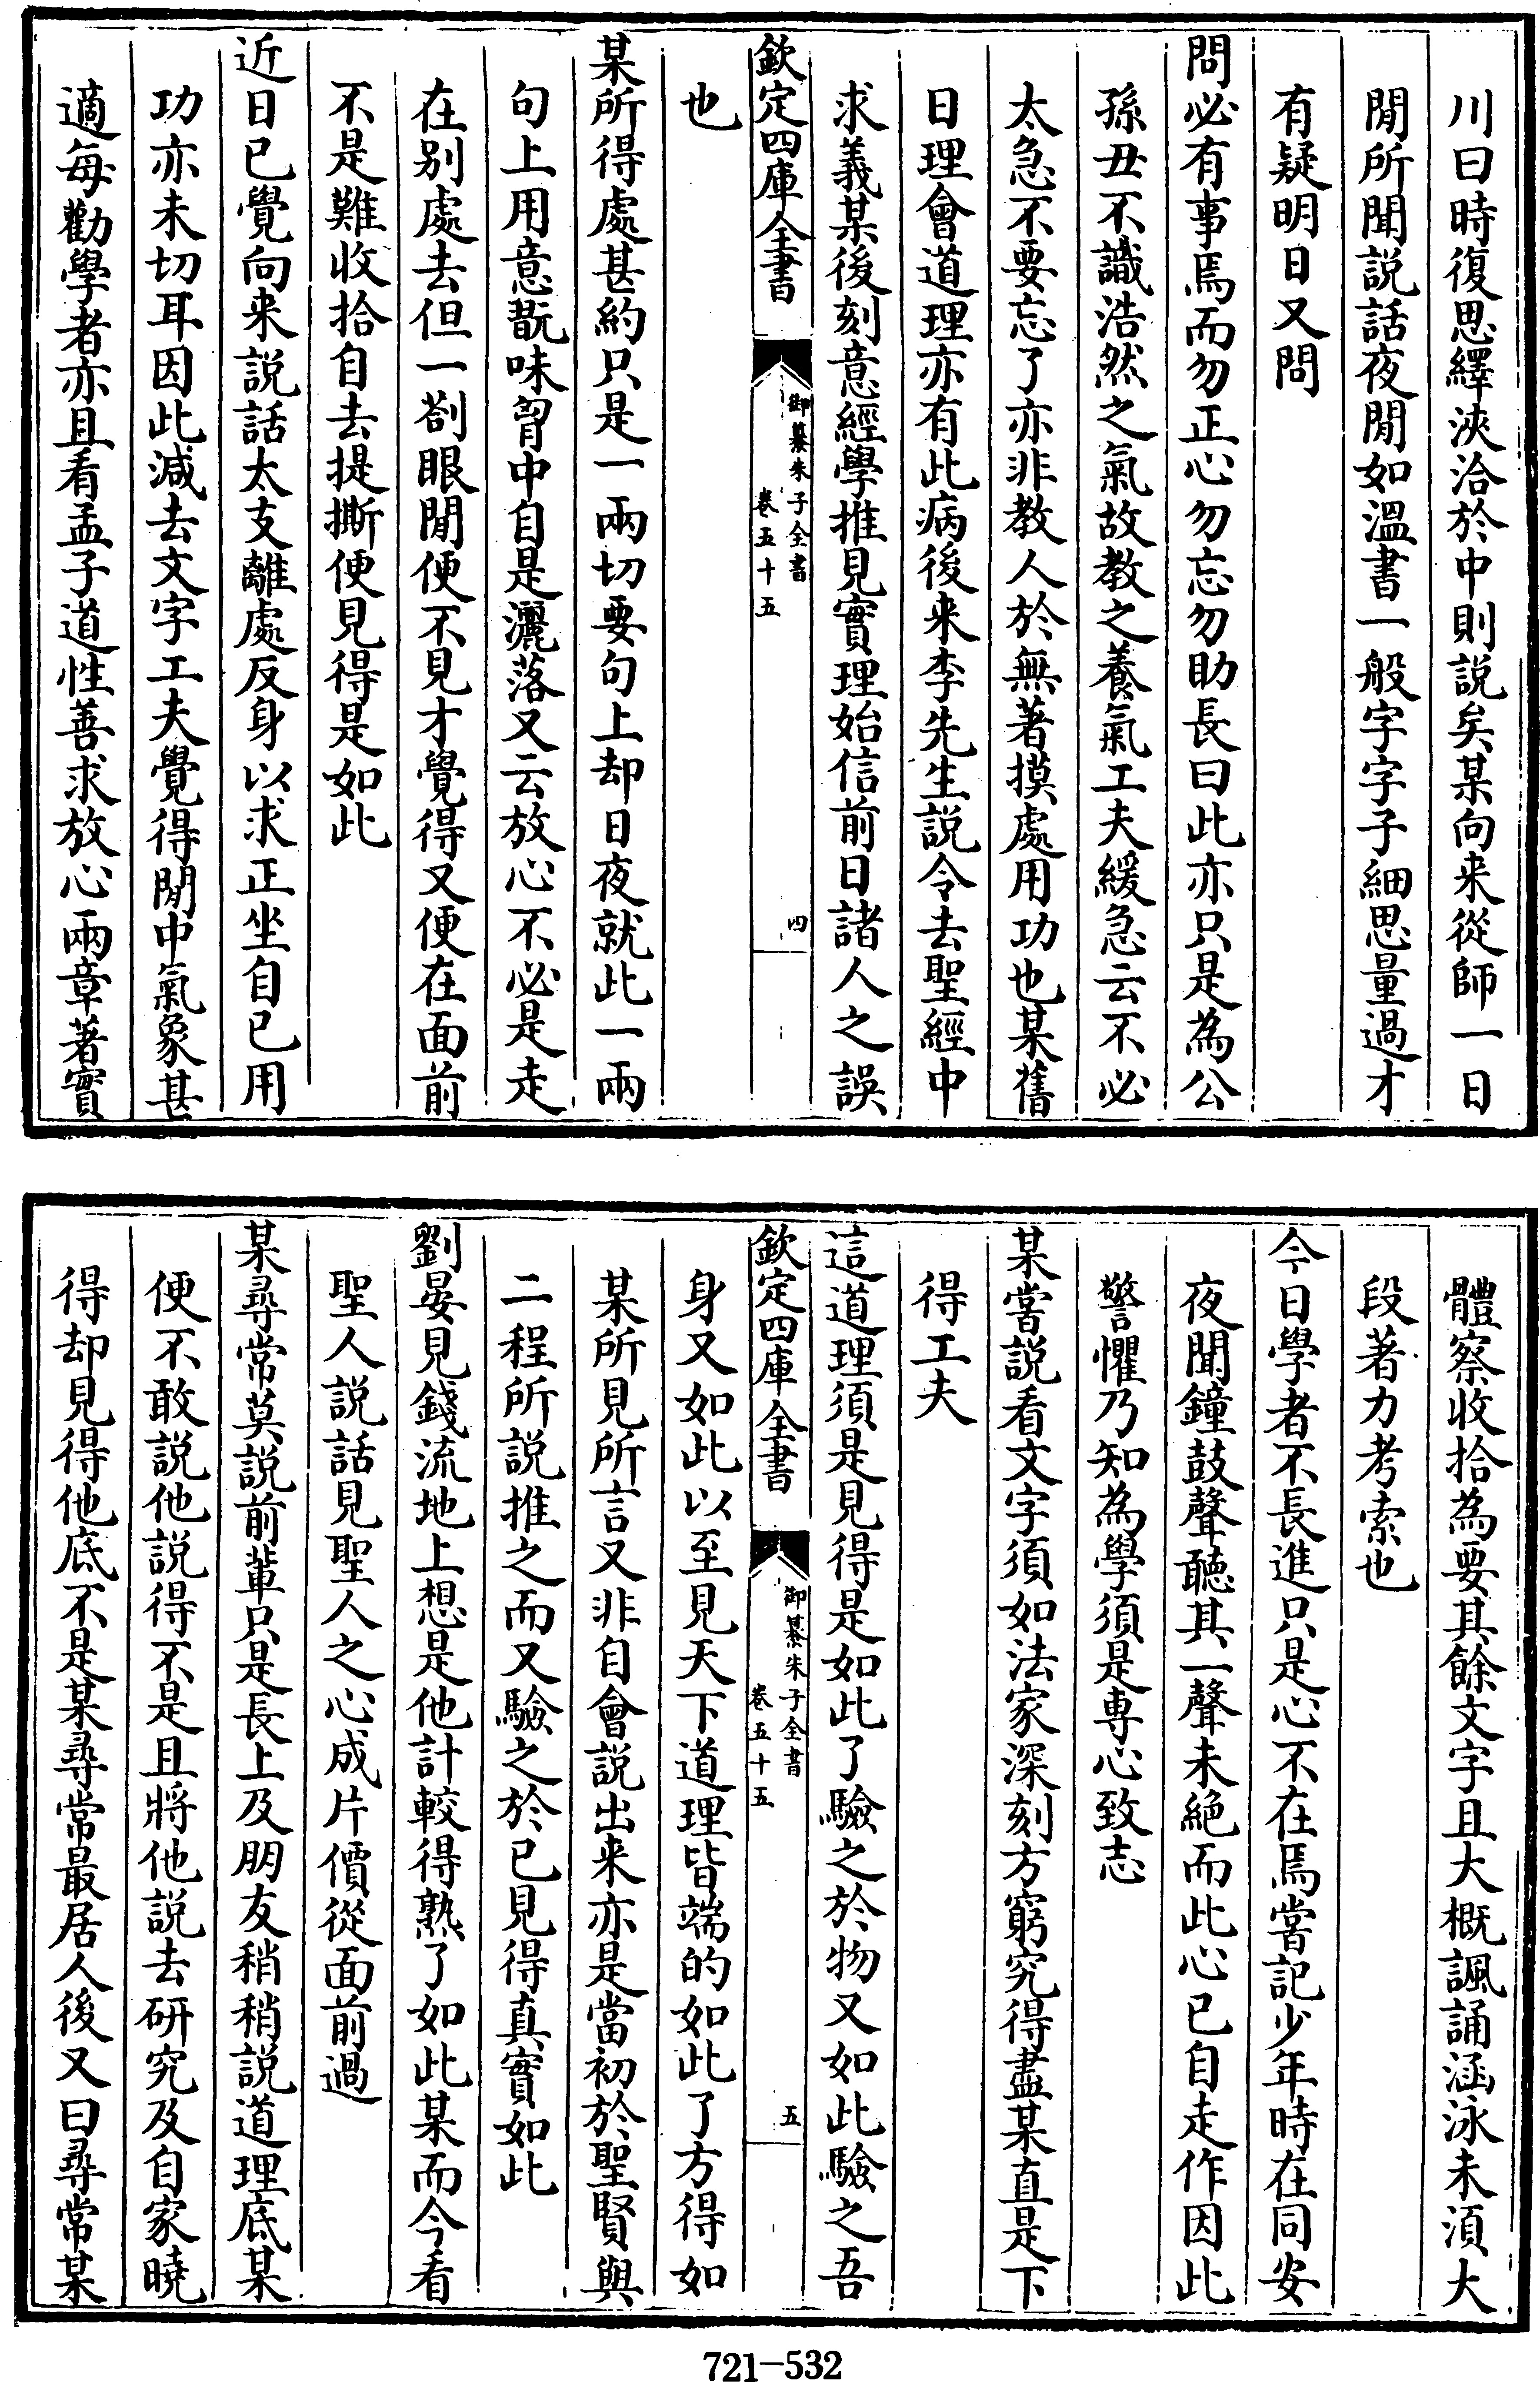 川曰時復思繹浹洽於中則說矣某向来從師一日
閒所聞說話夜閒如溫書一般字字子細思量過才
有疑明日又問
問必有事焉而勿正心勿忘勿助長曰此亦只是為公
孫丑不識浩然之氣故教之養氣工夫緩急云不必
太急不要忘了亦非教人於無著摸處用功也某舊
日理會道理亦有此病後来李先生說令去聖經中
求義某後刻意經學推見實理始信前日諸人之誤
欽定四庫全書
御纂朱子全書
卷五十五
四
也
某所得處甚約只是一兩切要句上却日夜就此一兩
句上用意翫味胷中自是灑落又云放心不必是走
在别處去但一劄眼閒便不見才覺得又便在面前
不是難收拾自去提撕便見得是如此
近日已覺向来說話太支離處反身以求正坐自己用
功亦未切耳因此減去文字工夫覺得閒中氣象甚
適每勸學者亦且看孟子道性善求放心兩章著實
體察收拾為要其餘文字且大概諷誦涵泳未須大
段著力考索也
今日學者不長進只是心不在焉嘗記少年時在同安
夜聞鐘鼓聲聽其一聲未絕而此心已自走作因此
警懼乃知為學須是專心致志
某嘗說看文字須如法家深刻方窮究得盡某直是下
得工夫
這道理須是見得是如此了驗之於物又如此驗之吾
欽定四庫全書
御纂朱子全書
卷五十五
五
身又如此以至見天下道理皆端的如此了方得如
某所見所言又非自會說出来亦是當初於聖賢與
二程所說推之而又驗之於己見得真實如此
劉晏見錢流地上想是他計較得熟了如此某而今看
聖人說話見聖人之心成片價從面前過
某尋常莫說前輩只是長上及朋友稍稍說道理底某
便不敢說他說得不是且將他說去研究及自家曉
得却見得他底不是某尋常最居人後又曰尋常某
721-532